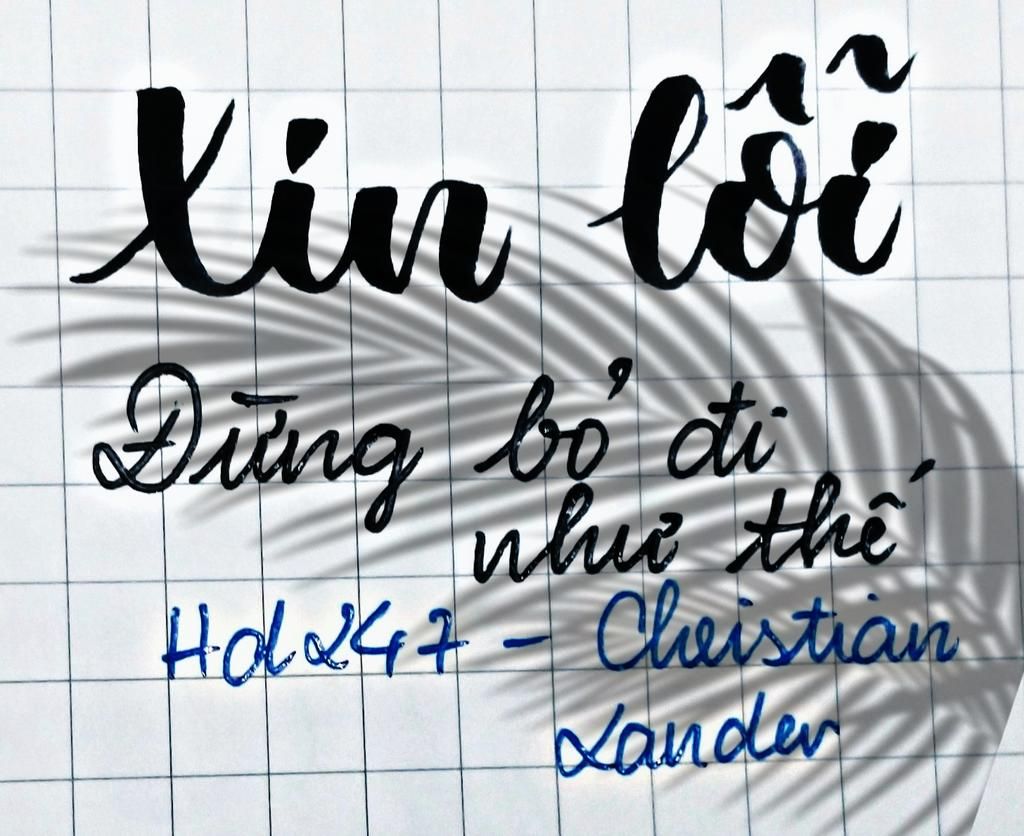 Xin lỗi
Đừng bỏ đi
như thế
Hd247 - Christian
Lander